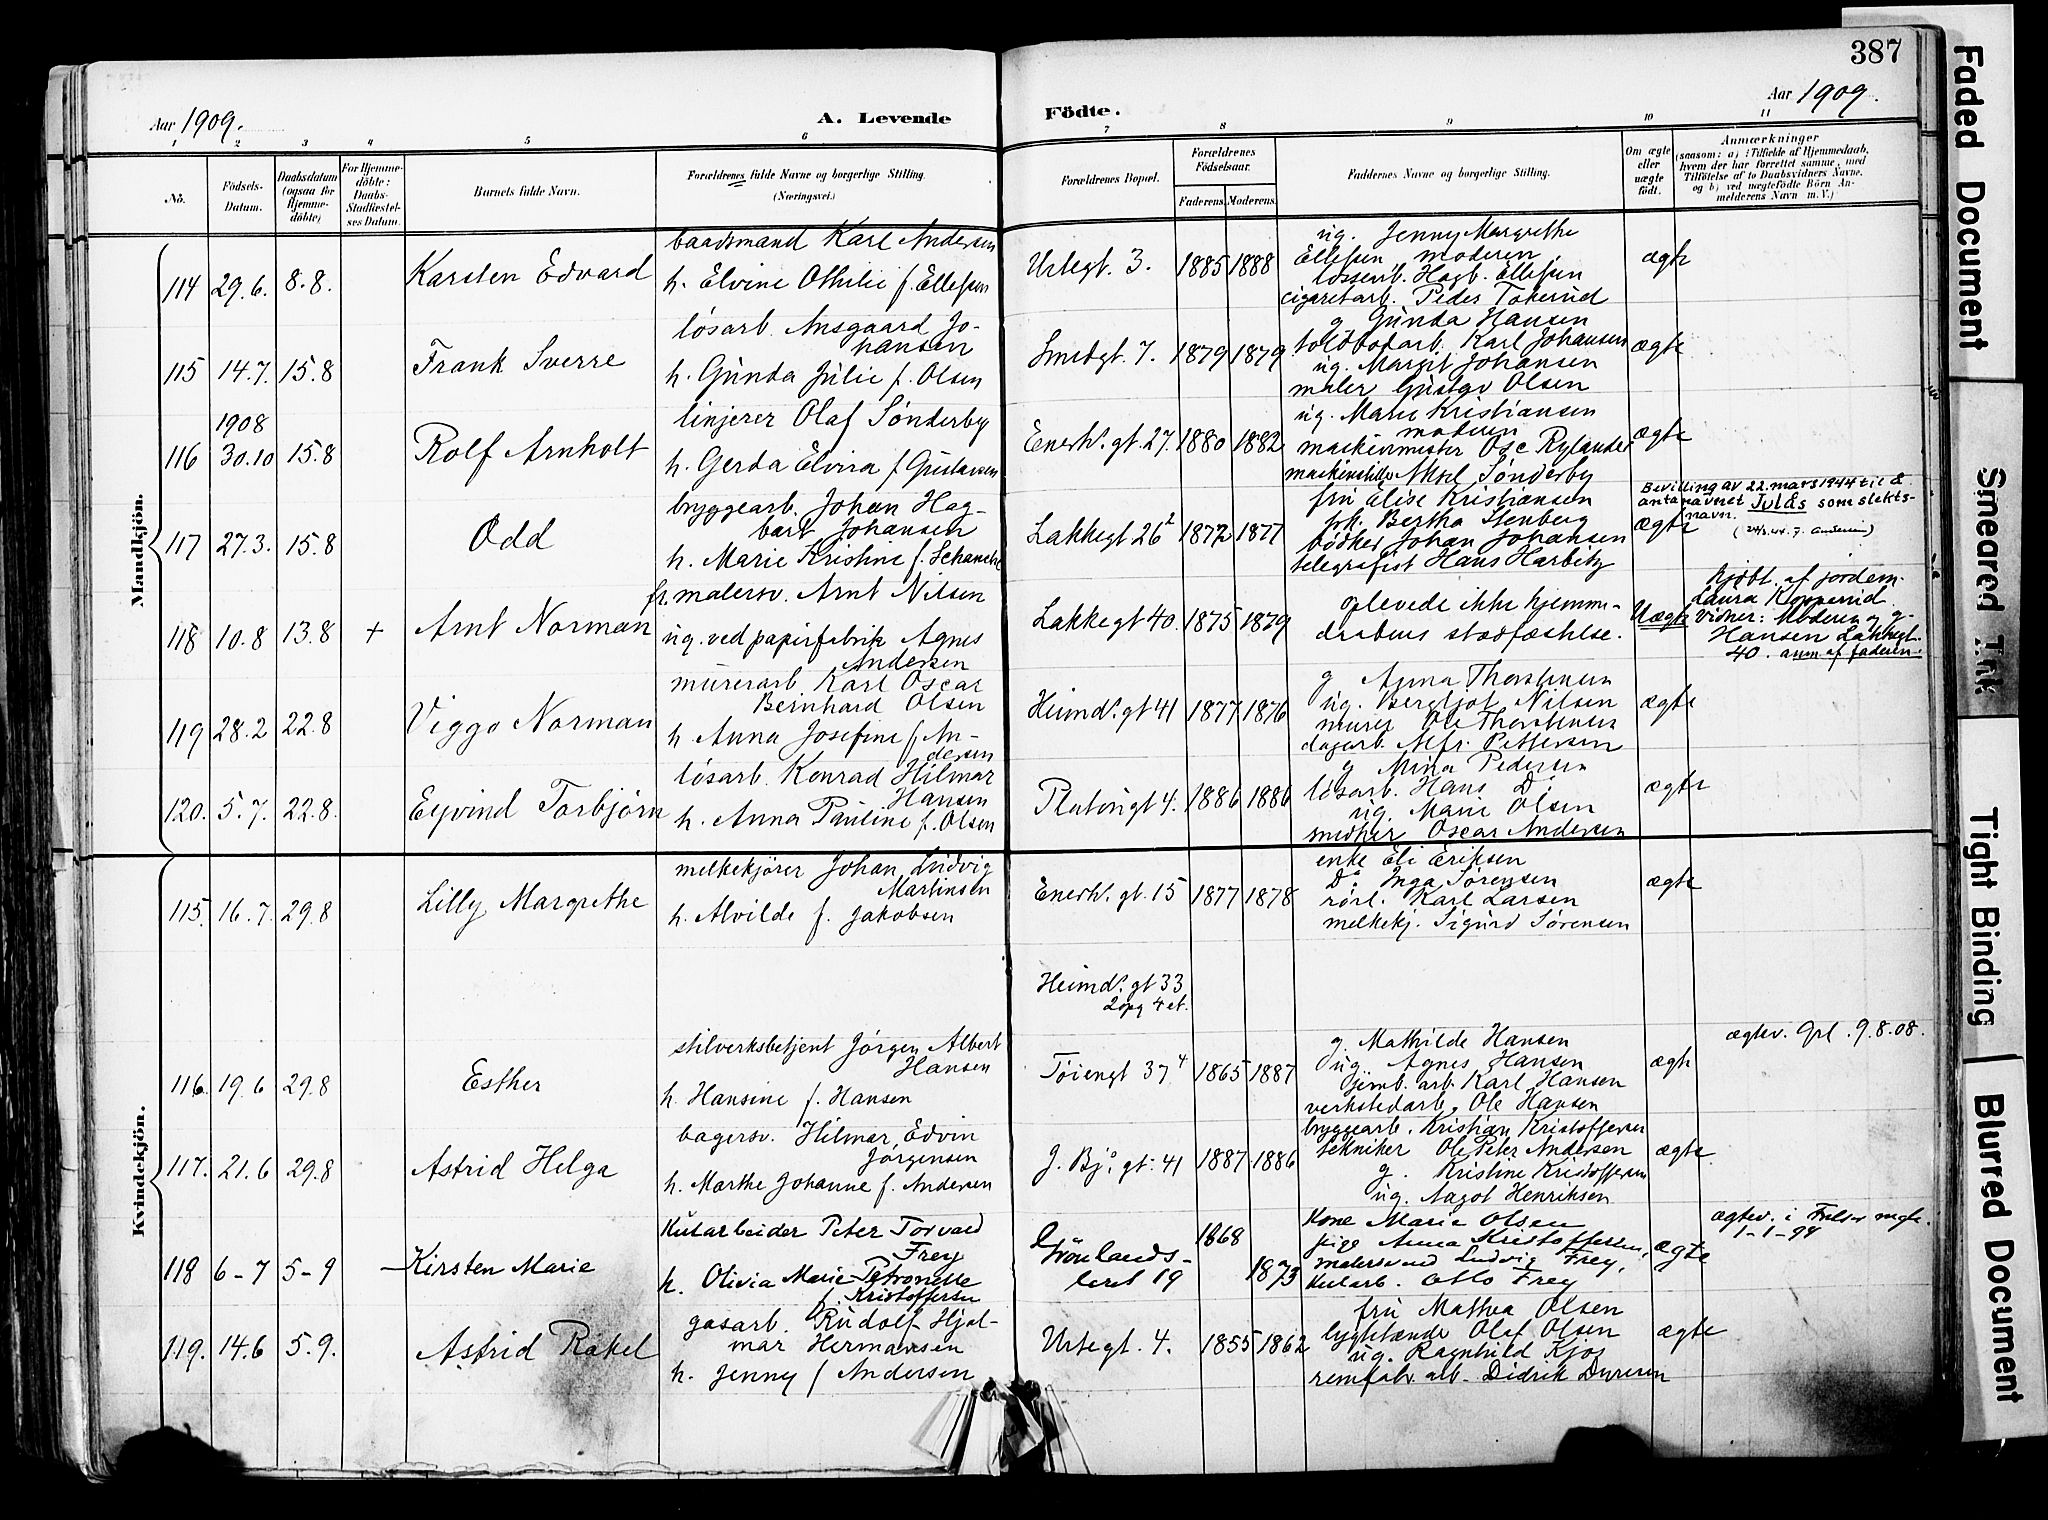 387
Aar 1909.
A. Levende
Födte.
Aar 1909.
1 2 3 4 5 6 7 8 9 10 11
No.
Födsels-Datum.
Daabsdatum (ogsaa for Hjemme-döbte)
For Hjemme-döbte: Daabs-Stadfæstel-ses Datum.
Barnets fulde Navn.
Forældrenes fulde Navne og borgerlige Stilling.
(Næringsvei.)
Forældrenes Bopæl.
Forældrenes Födselsaar.
Faderens. Moderens.
Faddernes Navne og borgerlige Stilling.
Om ægte eller uægte födt.
Anmærkninger
(saasom: a) i Tilfælde af Hjemmedaab, hvem der har forrettet samme, med Tilföielse af to Daabsvidners Navne. og b) ved uægtefödte Börn An-melderens Navn m.V.)
Mandkjön.
114 29.6. 8.8. Karsten Edvard
baadsmand Karl Andersen
h. Elvine Othilie f. Ellefsen
Urtegt. 3. 1885 1888
ug. Jenny Margrethe
Ellefsen, moderen
løssearb. Hagb. Ellefsen
cigaretarb. Peder Tokerud
ægte
115 14.7. 15.8 Frank Sverre
løsarb. Ansgaard Jo-
hansen
h. Gunda Julie f. Olsen
Smedgt. 7. 1879 1879
g Gunda Hansen
toldbodarb. Karl Johansen
ug. Margit Johansen
maler Gustav Olsen
ægte
1908
116 30.10 15.8 Rolf Arnholt
linjerer Olaf Sønderby
h. Gerda Elvira f. Gustavsen
Enerh. gt. 27. 1880 1882
ug. Marie Kristiansen
moderen
maskinmester Osc Rylander
Aksel Sønderby
ægte
117 27.3. 15.8 Odd
bryggearb. Johan Hag-
bart Johansen
h. Marie Kristine f.
Lakkegt 26² 1872 1877
fru Elise Kristiansen
frk. Bertha Stenberg
bødker Johan Johansen
telegrafist Hans Harbitz
ægte
Bevilling av 22. mars 1944 til å
anta navnet Julås som slekts-
navn.
118 10.8 13.8 + Arnt Norman
fr. malersv. Arnt Nilsen
ug. ved papirfabrik Agnes
Andersen
Lakkegt 40. 1875 1879
oplevede ikke hjemme-
daabens stadfæstelse.
Uægte
hjdbt. af jordem.
Laura Kopperud
Vidner: Moderen og g.
Hansen Lakkegt.
40. anm. af faderen.
119 28.2 22.8 Viggo Norman
murerarb. Karl Oscar
Bernhard Olsen
h. Anna Josefine f. An-
dersen
Heimd. gt 41 1877 1876
g Anna Thorstensen
ug. Bergljot Nilsen
murer Ole Thorstensen
dagarb. Alfr. Pettersen
ægte
120. 5.7. 22.8. Eyvind Torbjørn
løsarb. Konrad Hilmar
Hansen
h. Anna Pauline f. Olsen
Platougt 4. 1886 1886
g Mina Pedersen
løsarb. Hans Do
ug. Marie Olsen
Oscar Andersen
ægte
Kvindekjön.
115. 16.7. 29.8 Lilly Margrethe
melkekjører Johan Ludvig
Martinsen
h. Alvilde f. Jakobsen
Enerh. gt. 15 1877 1878
enke Eli Eriksen
Do Inga Sørensen
rørl. Karl Larsen
melkekj. Sigurd Sørensen
ægte
Heimd. gt 33
2 opg 4 et.
116. 19.6 29.8 Esther
stilverksbetjent Jørgen Albert
Hansen
h. Hansine f. Hansen
Tøiengt 37⁴ 1865 1887
g. Mathilde Hansen
ug. Agnes Hansen
jernb. arb. Karl Hansen
verkstedarb. Ole Hansen
ægte
ægtev. Grl. 9.8.08.
117. 21.6 29.8 Astrid Helga
bagersv. Hilmar Edvin
Jørgensen
h. Marthe Johanne f. Andersen
J. Bj. gt. 41 1887 1886
bryggearb. Kristian Kristoffersen
tekniker Ole Peter Andersen
g. Kristine Kristoffersen
ug. Aagot Henriksen
ægte
118 6-7 5-9 Kirsten Marie
Kularbeider Peter Torvald
Frey
h. Olivia Marie Petronelle
f. Kristoffersen
Grönlands-
leret 19 1868 1873
Kone Marie Olsen
pige Anna Kristoffersen,
malersvend Ludvig Frey,
Kularb. Otto Frey
ægte
ægtev. i
1-1-94
119. 14.6 5.9. Astrid Rakel
gasarb. Rudolf Hjal-
mar Hermansen
h. Jenny f Andersen
Urtegt. 4. 1855 1862
fru Mathea Olsen
lygtetænde Olaf Olsen
ug. Ragnhild Kjos
remfabr. arb. Didrik
ægte
Faded Document
Smeared Ink
Tight Binding
Blurred Document